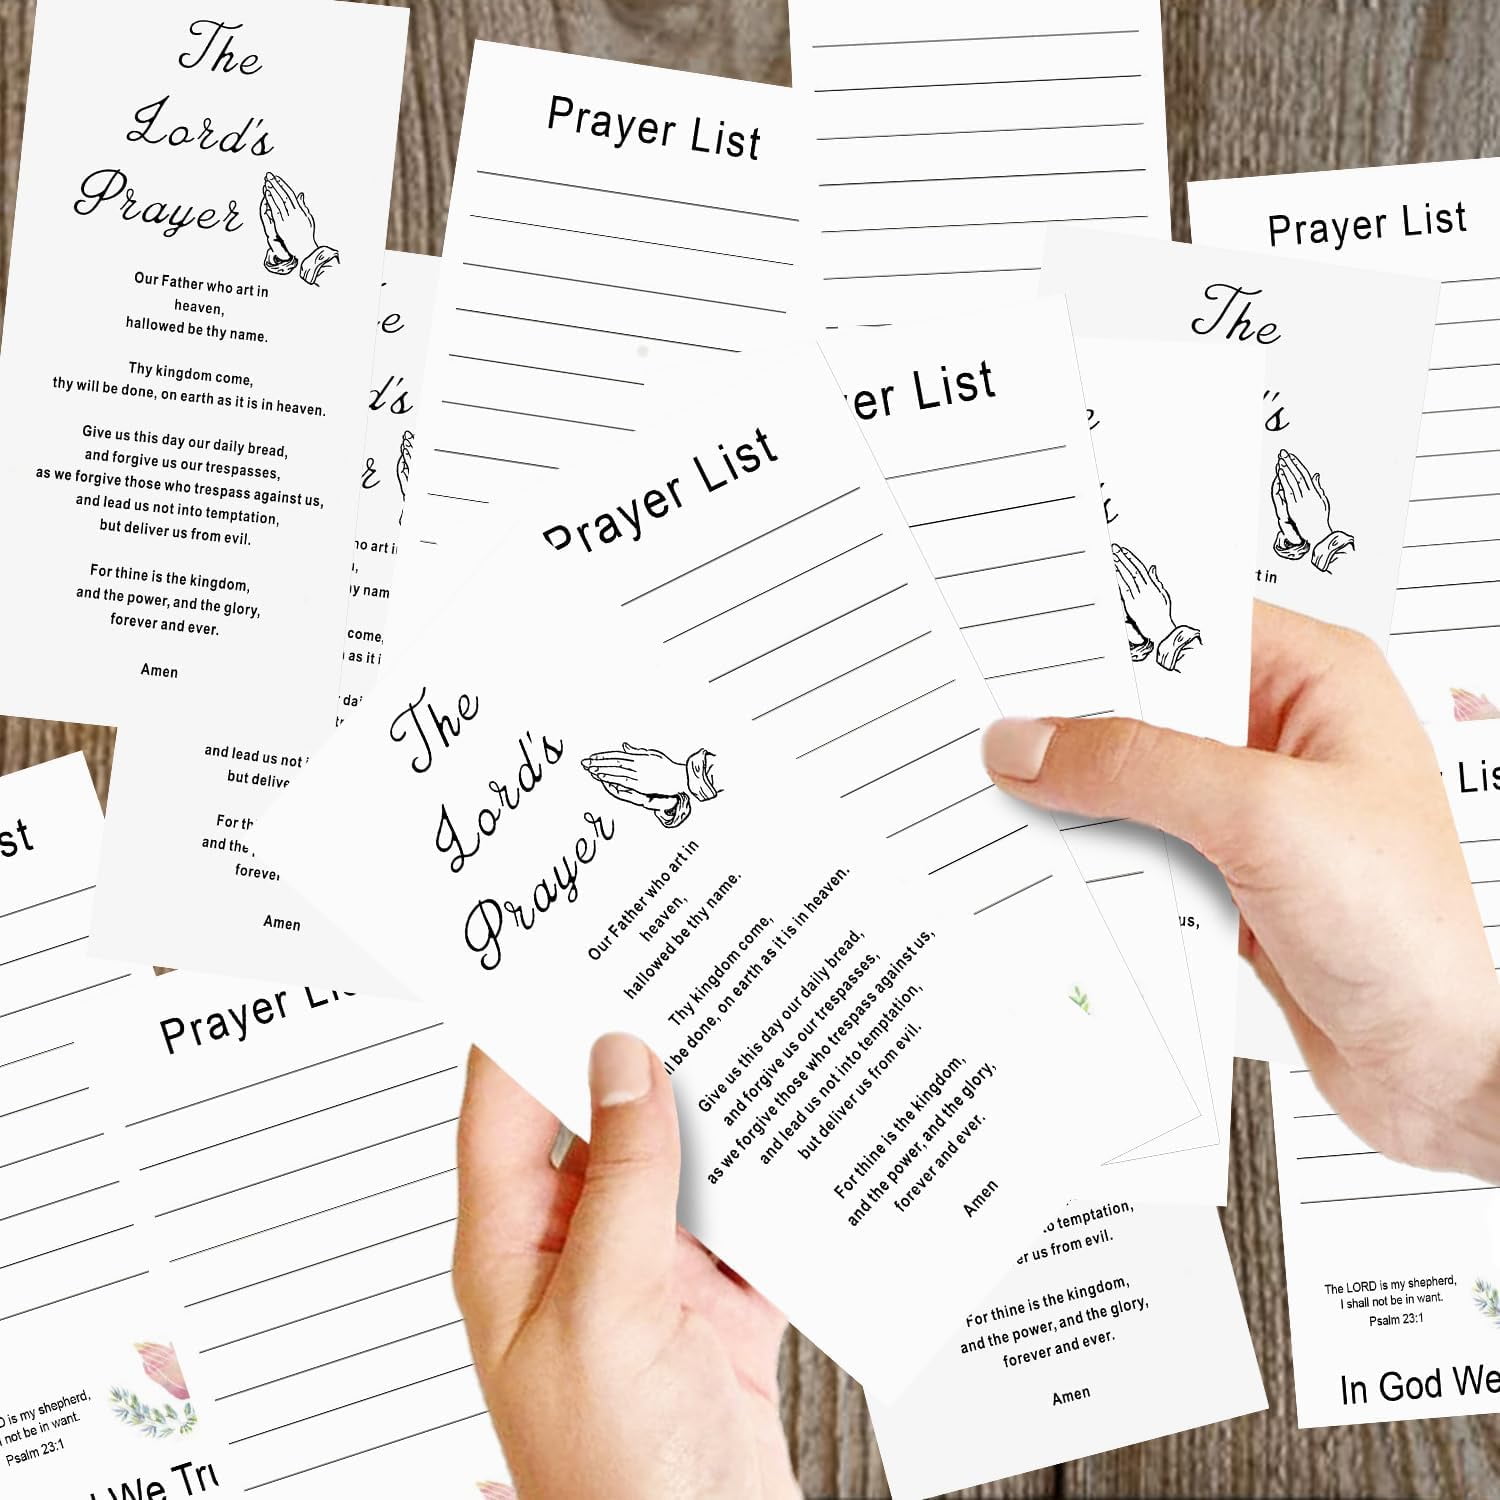 The
Lord's
Prayer
Our Father who art in
heaven,
hallowed be thy name.
Thy kingdom come,
thy will be done, on earth as it is in heaven.
Give us this day our daily bread,
and forgive us our trespasses,
as we forgive those who trespass against us,
and lead us not into temptation,
but deliver us from evil.
For thine is the kingdom,
and the power, and the glory,
forever and ever.
Amen
Prayer List
Prayer List
The
art in
come,
as it i
and lead us not
For
and the
Amen
List
Prayer List
The
Lord's
Prayer
Our Father who art in
heaven,
hallowed be thy name.
Thy kingdom come,
be done, on earth as it is in heaven.
Give us this day our daily bread,
and forgive us our trespasses,
as we forgive those who trespass against us,
and lead us not into temptation,
but deliver us from evil.
For thine is the kingdom,
and the power, and the glory,
forever and ever.
Amen
in
us,
Prayer
is my shepherd,
not be in want.
Psalm 23:1
We
temptation,
us from evil.
For thine is the kingdom,
and the power, and the glory,
forever and ever.
Amen
The LORD is my shepherd,
I shall not be in want.
Psalm 23:1
In God We